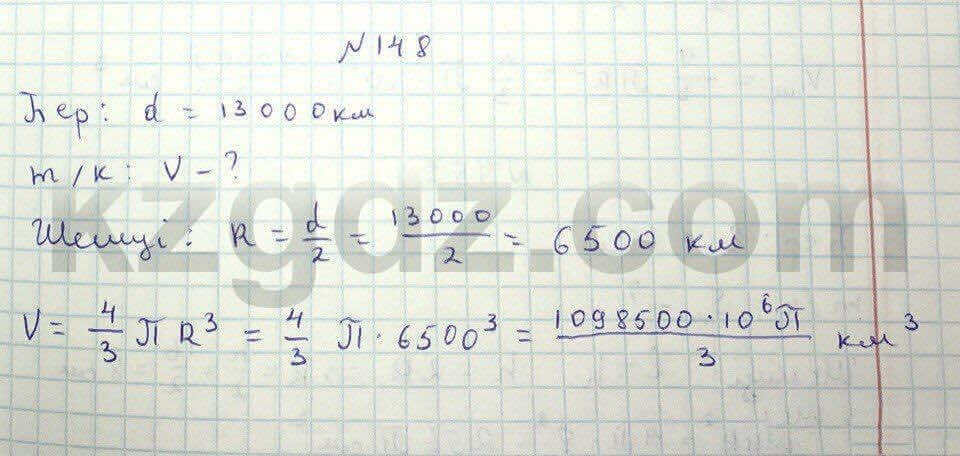 №148
Бер: d = 13000км
т/к: V - ?
Шешуі: R = d/2 = 13000/2 = 6500 км
V = 4/3 π R³ = 4/3 π · 6500³ = 1098500·10⁶π/3 км³
kzgdz.com